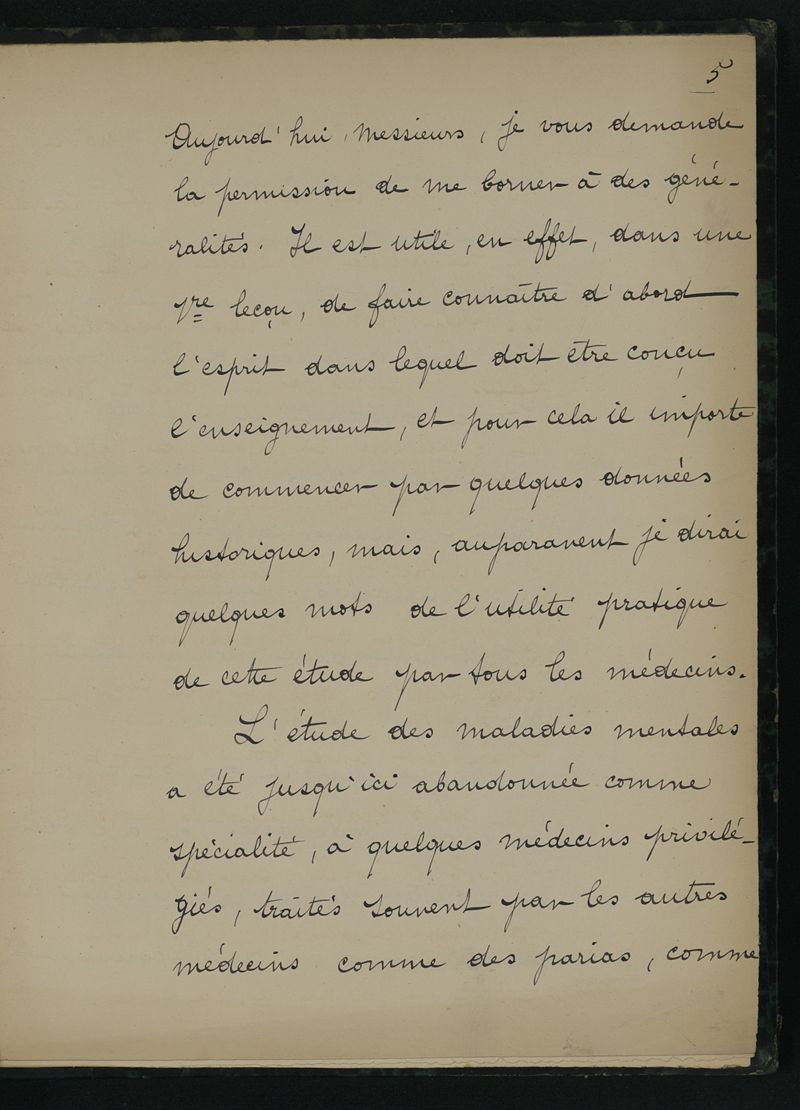 5
Aujourd'hui, Messieurs, je vous demande
la permission de me borner à des géné-
ralités. Il est utile, en effet, dans une
1re leçon, de faire connaître d'abord
l'esprit dans lequel doit être conçu
l'enseignement, et pour cela il importe
de commencer par quelques données
historiques, mais, auparavent je dirai
quelques mots de l'utilité pratique
de cette étude par tous les médecins.
L'étude des maladies mentales
a été jusqu'ici abandonnée comme
spécialité, à quelques médecins privilé-
giés, traités souvent par les autres
médecins comme des parias, comme